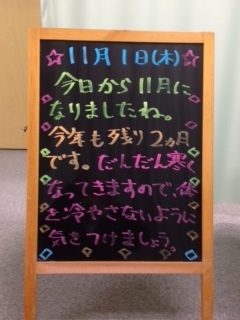 ☆11月1日(木)☆
今日から11月に
なりましたね。
今年も残り2ヵ月
です。だんだん寒く
なってきますので、体
を冷やさないように
気をつけましょう。